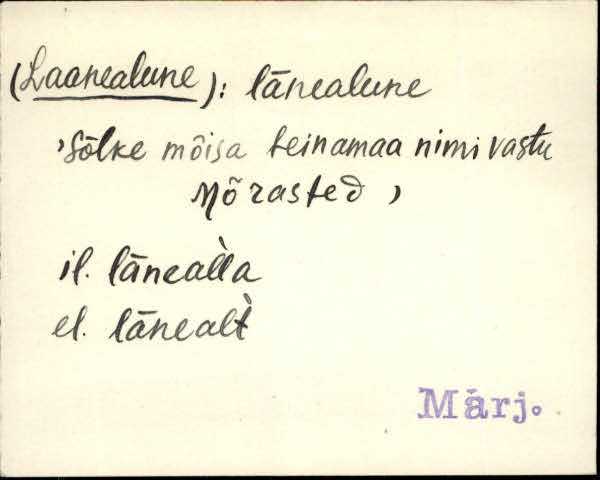 (Laanealune): lānealune
›Sõlke mõisa heinamaa nimi vastu
Mõrasted ›
il. lānealla
el. lānealt
Märj.